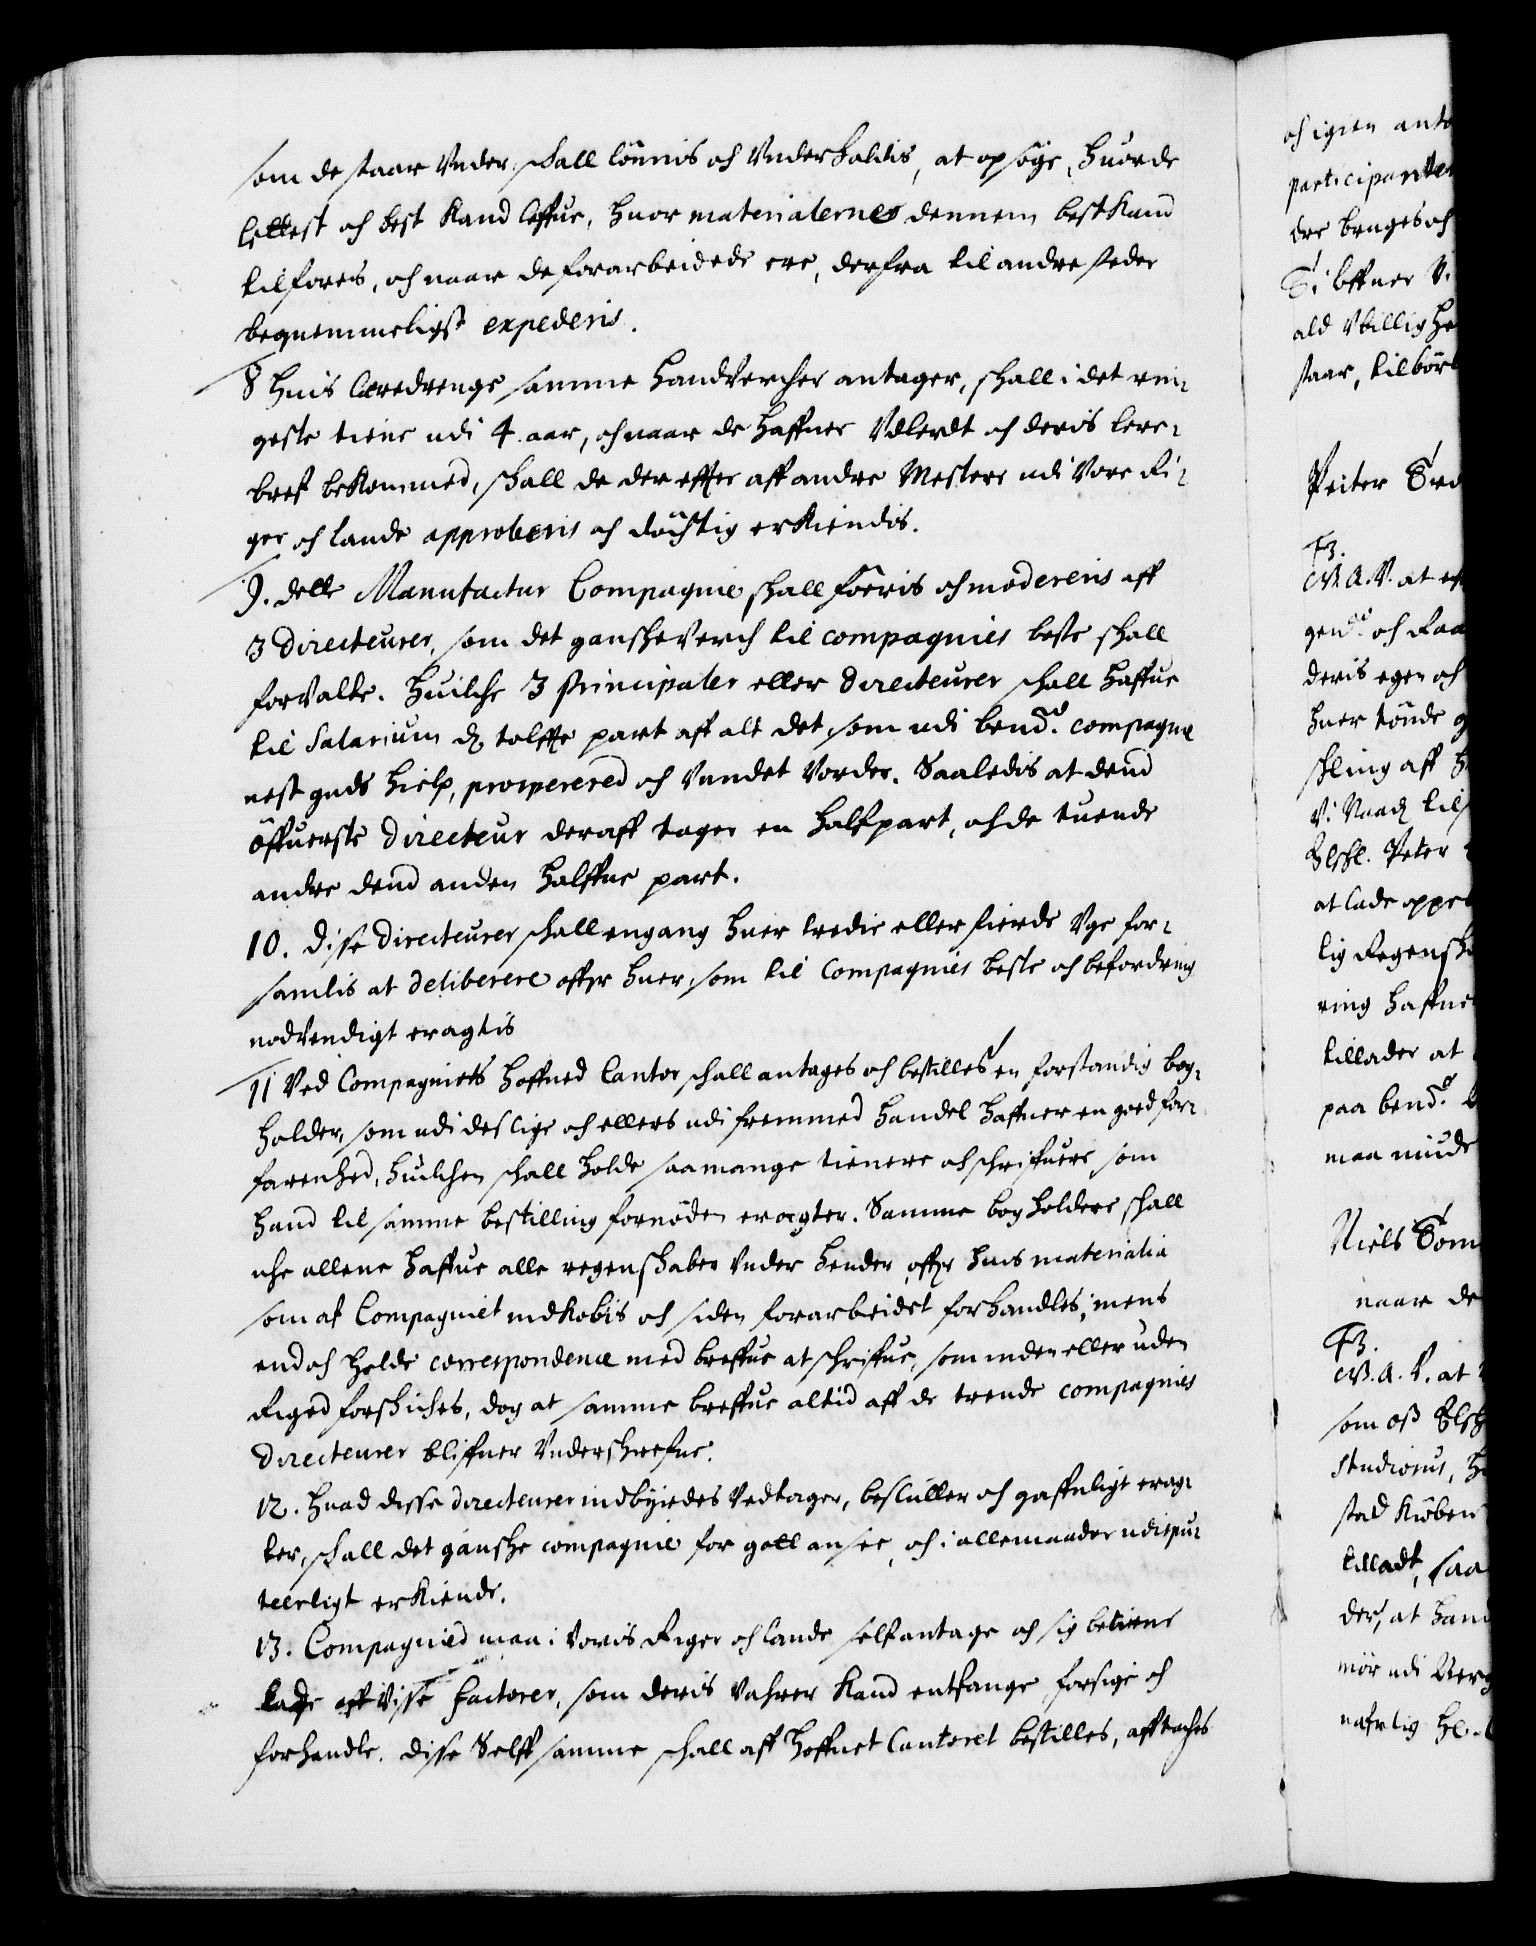 som de staar Vnder, schall lönnis och Vnderholdis, at opsöge, huor de
lettest och best Kand leffue, huor materialerne dennem best Kand
tilföres, och naar de forarbeidede ere, derfra til andre steder
bequemmeligst expederis.
8 Huis læredrenge samme Handvercher antager, schall i det rin-
geste tiene udi 4. aar, och naar de haffuer Vdlerdt och deris lere-
bref bekommed, schall de der effter aff andre Mestere udi Vore Ri-
ger och Lande approberis och döchtig erkiendis.
9. dette Manufactur Compagnie schall föeris och modereris aff
3 Directeurer, som det gansche Verch til compagnies beste schall
forvalte. Huilche 3 Principaler eller Directeurer schall haffue
til Salarium dend tolffte part aff alt det, som udi bemd.te compagnie
nest guds hielp, prospereret och Vundet Vorder. Saaledis at dend
öffuerste Directeur deraff tager en halfpart, och de tuende
andre dend anden halffue part.
10. Disse Directeurer schall engang huer tredie eller fierde Vge for-
samlis at deliberere offuer huer, som til Compagnies beste och befordring
nodvendigt eragtis
11 Ved Compagniets hoffued Cantor schall antages och bestilles en forstandig bog-
holder, som udi deslige och ellers udi fremmed handel haffuer en goed for-
farenhed, huilchen schall holde saa mange tienere och schriffuere som
hand til samme bestilling fornöden eragter. Samme bogholdere schall
iche allene haffue alle regenskaber Vnder hender offuer huis materialia
som af Compagniet indkobis och siden forarbeidet forhandles, mens
endoch holde correspondence med breffue at schriffue, som inden eller uden
Riged forschiches, dog at samme breffue altid aff de trende compagnies
Directeurer bliffuer Vnderschrefne.
12. Huad disse directeurer indbyrdes Vedtager, beslutter och gaffnligt erag-
ter, schall det gansche compagnie for gott ansee, och i alle maader udispu-
teerligt erkiende.
13. Compagnied maa i Voris Riger och lande self antage och sig betiene
lade aff Visse factorer, som deris Vahrer Kand entfange forsige och
forhandle. Disse Selff samme schall aff Hoffuet Cantoret bestilles, afftaches
och igien anto
participanter
dre bruges och
ald Vbillig he
staar, tilbör
Peiter
C4. A. V. at
gend och Raa
deris egen och
huer tönde
schling aff
Peter
at lade oppe
lig Regensch
ring haffue
tillader at
paa bemd.te
maa niude
Niels
naar de
C4. A. V. at
som oss Elsk
Studiosus,
stad Kiöben
tilladt, saa
der, at hand